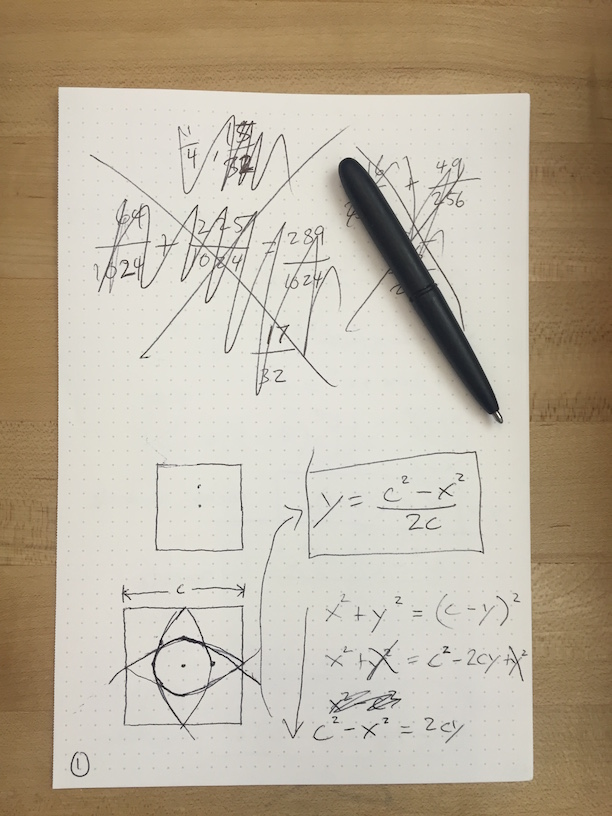 1/4
64/1024 + 225/1024 = 289/1024
17/32
49/256
y = (c² - x²)/2c
c
x² + y² = (c - y)²
x² + y² = c² - 2cy + y²
c² - x² = 2cy
1